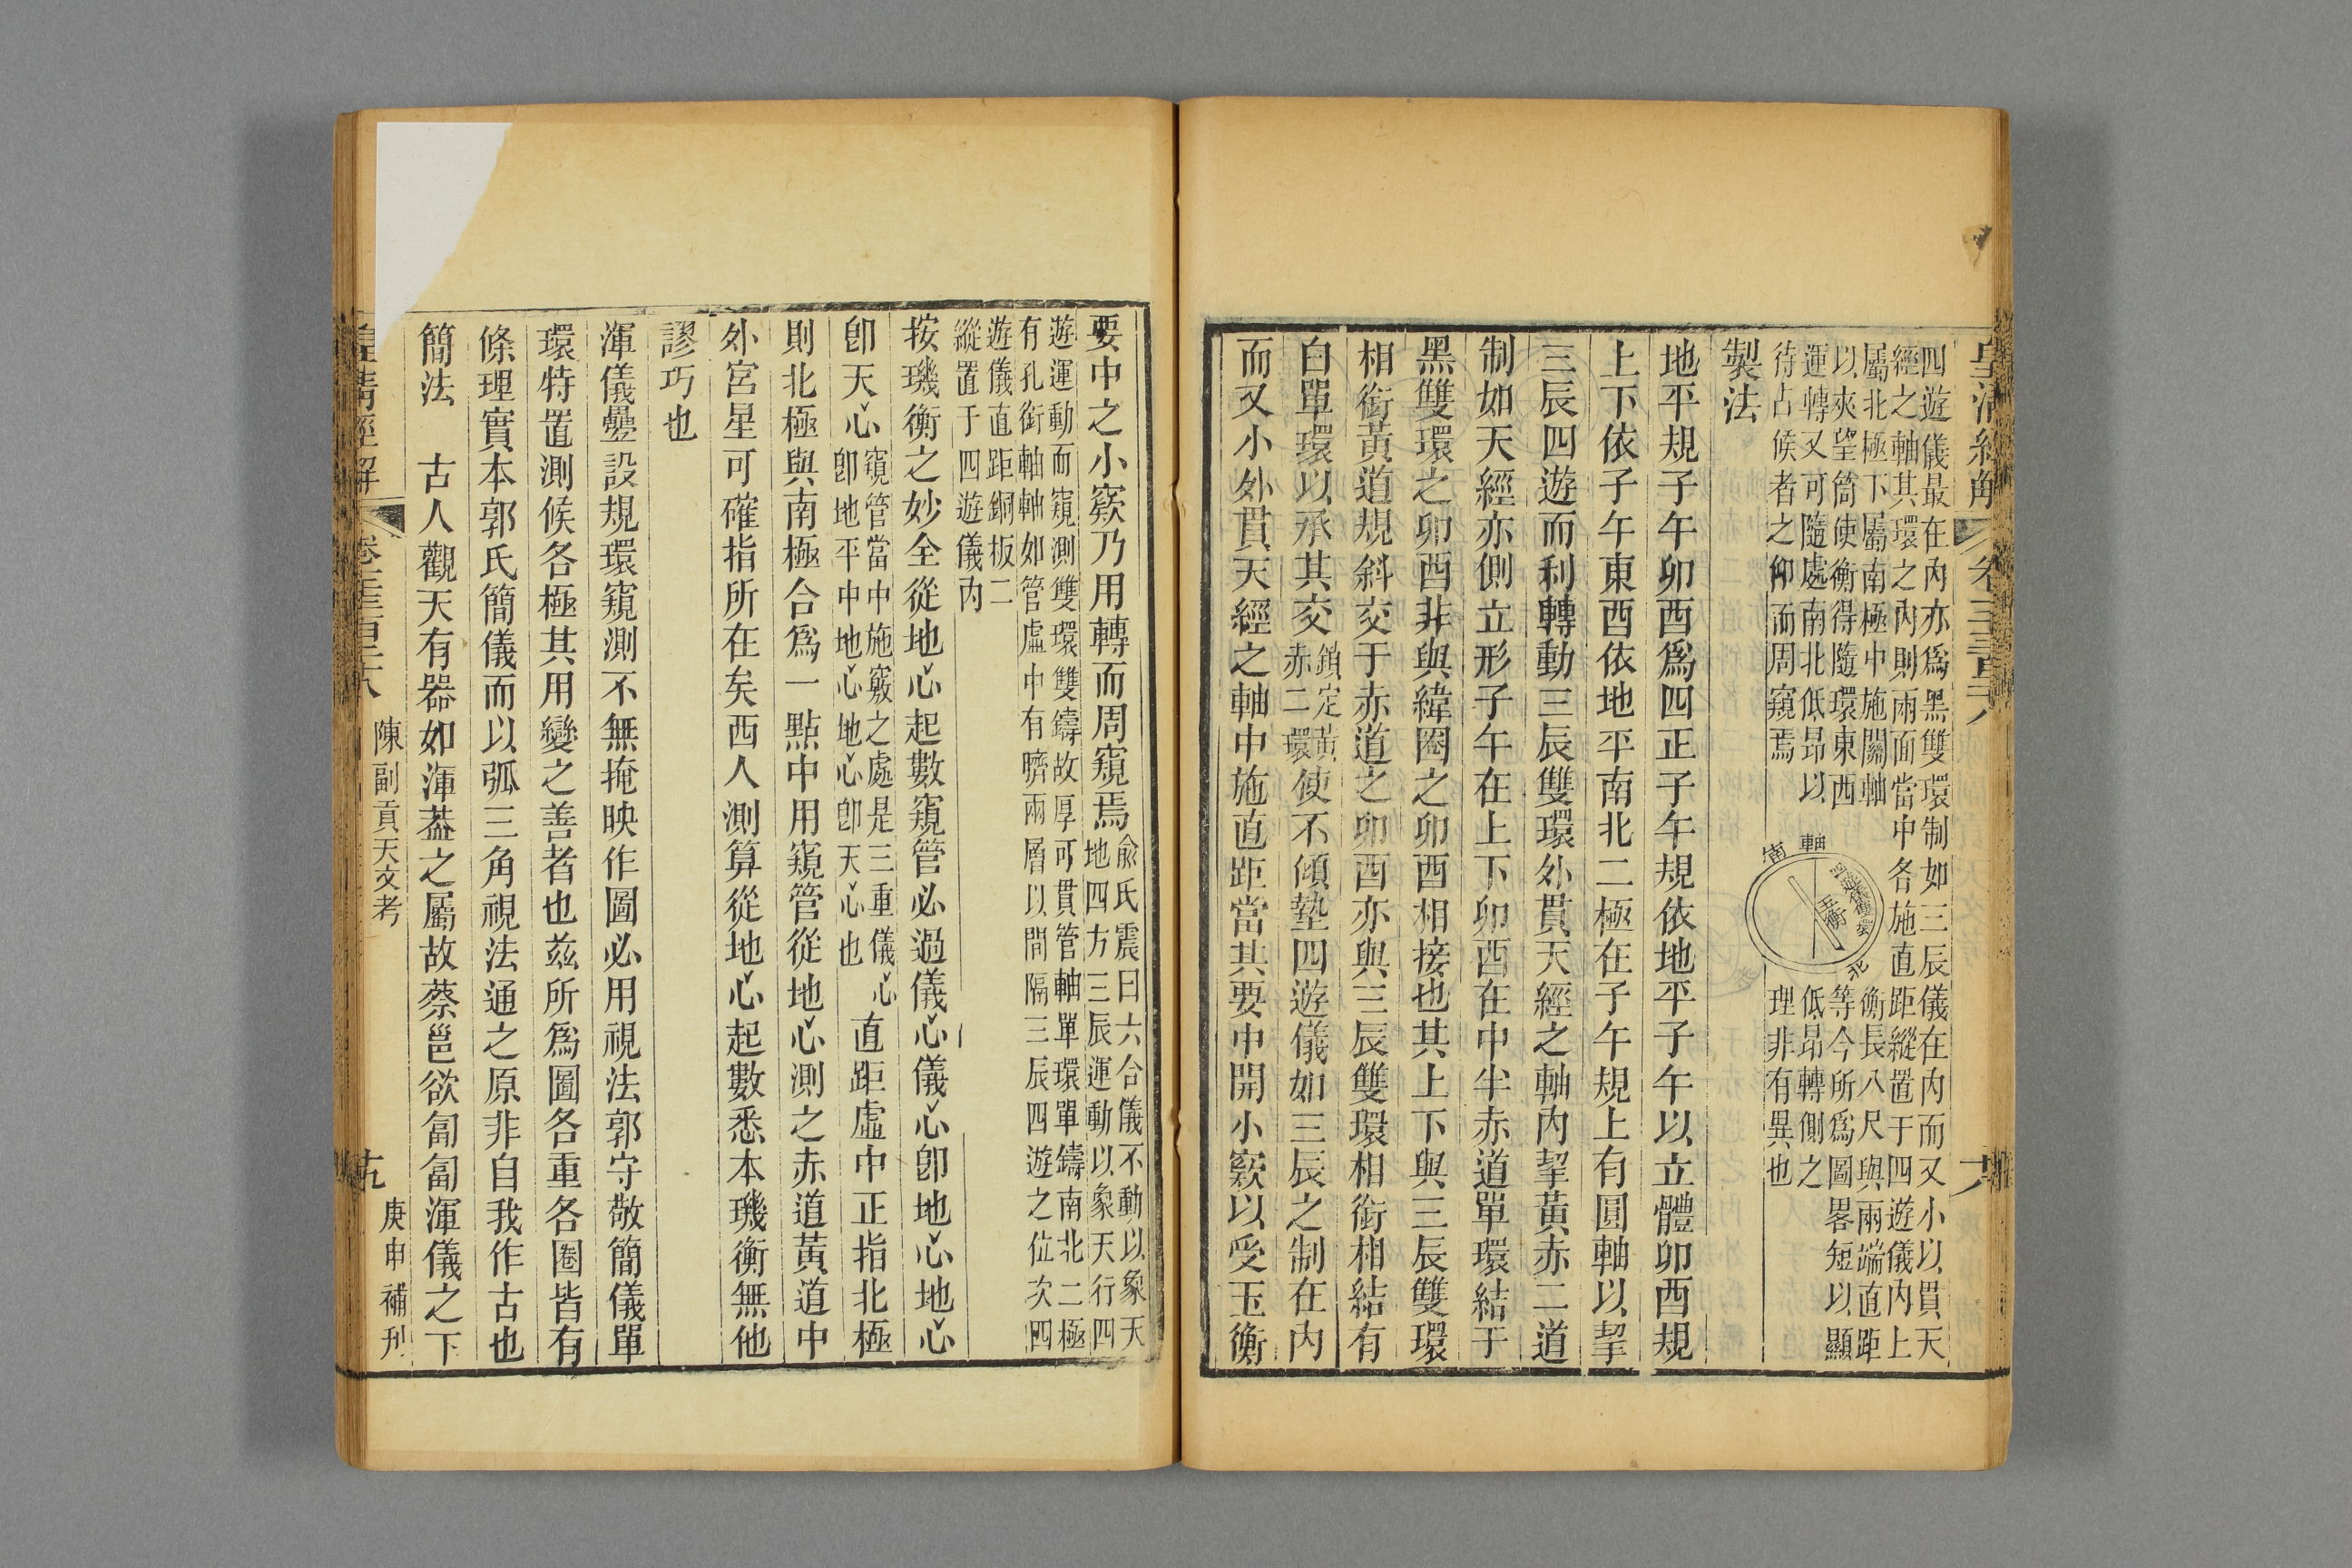 皇清經解
四遊儀最在內亦爲黑雙環制如三辰儀在內而又小以貫天
經之軸其環之內則兩面當中各施直距縱置于四遊儀內上
屬北極下屬南極中施關軸
以夾望筒使衡得隨環東西
運轉又可隨處南北低昂以
待占候者之仰而周窺焉
軸
南
玉衡
北
衡長八尺與兩端直距
等今所爲圖畧短以顯
低昂轉側之
理非有異也
製法
地平規子午卯酉爲四正子午規依地平子午以立體卯酉規
上下依子午東西依地平南北二極在子午規上有圓軸以挈
三辰四遊而利轉動三辰雙環外貫天經之軸內挈黃赤二道
制如天經亦側立形子午在上下卯酉在中半赤道單環結于
黑雙環之卯酉非與緯圈之卯酉相接也其上下與三辰雙環
相銜黃道規斜交于赤道之卯酉亦與三辰雙環相銜相結有
白單環以承其交鎖定黃赤二環使不傾墊四遊儀如三辰之制在內
而又小外貫天經之軸中施直距當其要中開小竅以受玉衡
要中之小竅乃用轉而周窺焉俞氏震曰六合儀不動以象天
地四方三辰運動以象天行四
遊運動而窺測雙環雙鑄故厚可貫管軸單環單鑄南北二極
有孔銜軸軸如管虛中有臍兩層以間隔三辰四遊之位次四
遊儀直距銅板二
縱置于四遊儀內
按璣衡之妙全從地心起數窺管必過儀心儀心卽地心地心
卽天心窺管當中施竅之處是三重儀心卽地平中地心地心卽天心也直距虛中正指北極
則北極與南極合爲一點中用窺管從地心測之赤道黃道中
外宮星可確指所在矣西人測算從地心起數悉本璣衡無他
謬巧也
渾儀疊設規環窺測不無掩映作圖必用視法郭守敬簡儀單
環特置測候各極其用變之善者也茲所爲圖各重各圈皆有
條理實本郭氏簡儀而以弧三角視法通之原非自我作古也
簡法　古人觀天有器如渾葢之屬故蔡邕欲匐匐渾儀之下
皇清經解
陳副貢天文考
庚申補刊